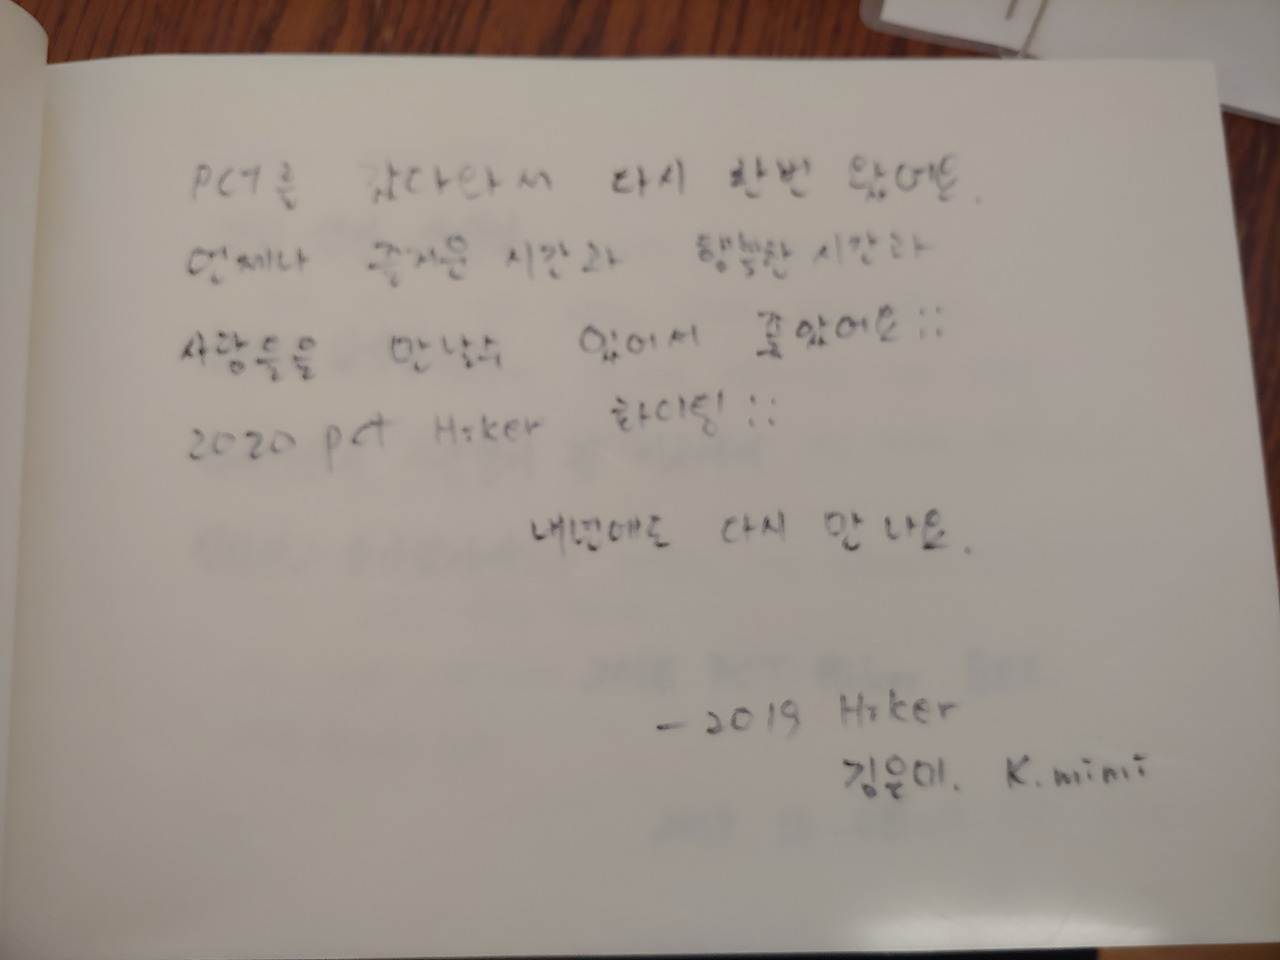 PCT를 갔다와서 다시 한번 왔어요.
언제나 즐거운 시간과 행복한 시간과
사람들을 만날수 있어서 좋았어요::
2020 pct Hiker 화이팅::
내년에도 다시 만나요.
- 2019 Hiker
김은미. K.mimi